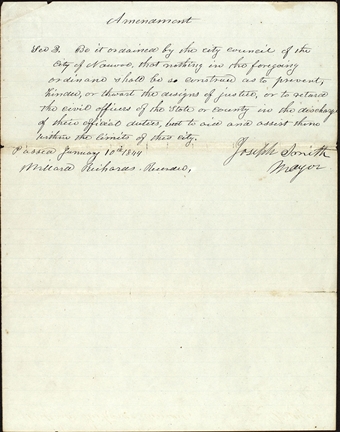 Amendment
Sec 3. Be it ordained by the city council of the
City of Nauvoo, that nothing in the foregoing
ordinance shall be so construed as to prevent,
hinder, or thwart the designs of justice, or to retard
the civil officers of the State or County in the discharge
of their official duties, but to aid and assist them
within the limits of this city.
Passed January 10th 1844
Joseph Smith
Mayor
Willard Richards. Recorder,